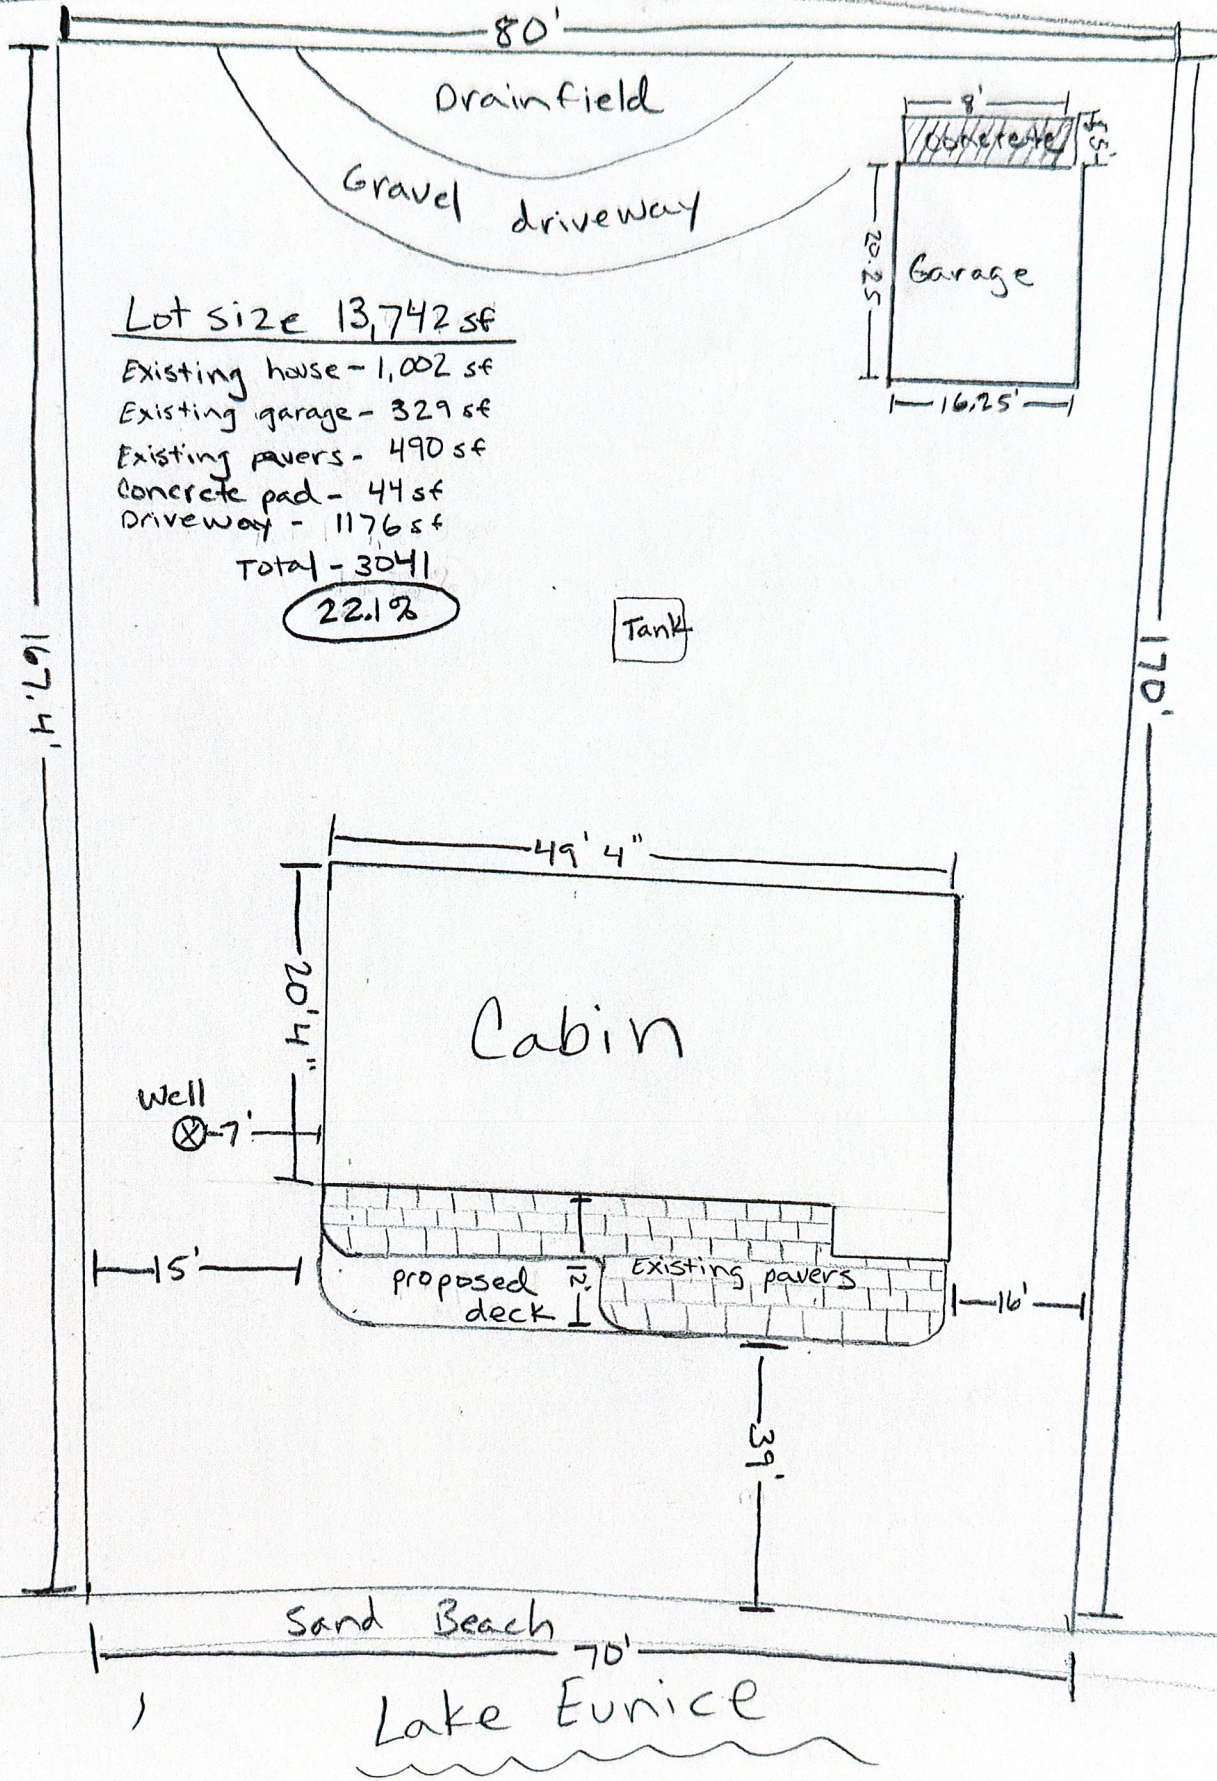 80'
Drainfield
8'
Concrete
5.5'
Gravel driveway
20.25
Garage
16.25'
Lot size 13,742 sf
Existing house - 1,002 sf
Existing garage - 329 sf
Existing pavers - 490 sf
Concrete pad - 44 sf
Driveway - 1176 sf
Total - 3041
22.1%
Tank
167.4'
170'
49' 4"
20' 4"
Cabin
Well
7'
15'
proposed
deck
12'
Existing pavers
16'
39'
Sand Beach
70'
Lake Eunice